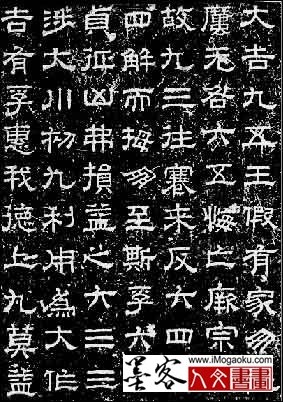 大吉九五王假有家勿
厲无咎六五悔亡厥宗
故九三往蹇来反六四
四解而拇朋至斯孚六
貞征凶弗損益之六三三
涉大川初九利用為大作
吉有孚惠我德上九莫益
墨客
www.iMogaoku.com
人文書畫